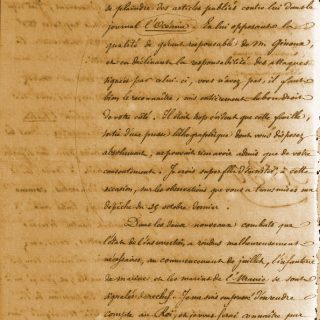 se plaindre des articles publiés contre lui dans le
journal l'Océanie. En lui opposant la
qualité de gérant responsable de M. Giraud,
et en déclinant la responsabilité des attaques
signées par celui-ci, vous n'avez pas, il faut
bien le reconnaître, mis entièrement le bon droit
de votre côté. Il était trop évident que cette feuille,
sortie d'une presse lithographique dont vous disposez
absolument, ne pouvait rien avoir admis que de votre
consentement. Je crois superflu d'insister, à cette
occasion, sur les observations que vous a transmises ma
dépêche du 25 octobre dernier.
Dans les deux nouveaux combats que
l'état de l'insurrection a rendus malheureusement
nécessaires, au commencement de juillet, l'infanterie
de marine et les marins de l' se sont
signalés derechef. Je me suis empressé d'en rendre
compte au Roi, en